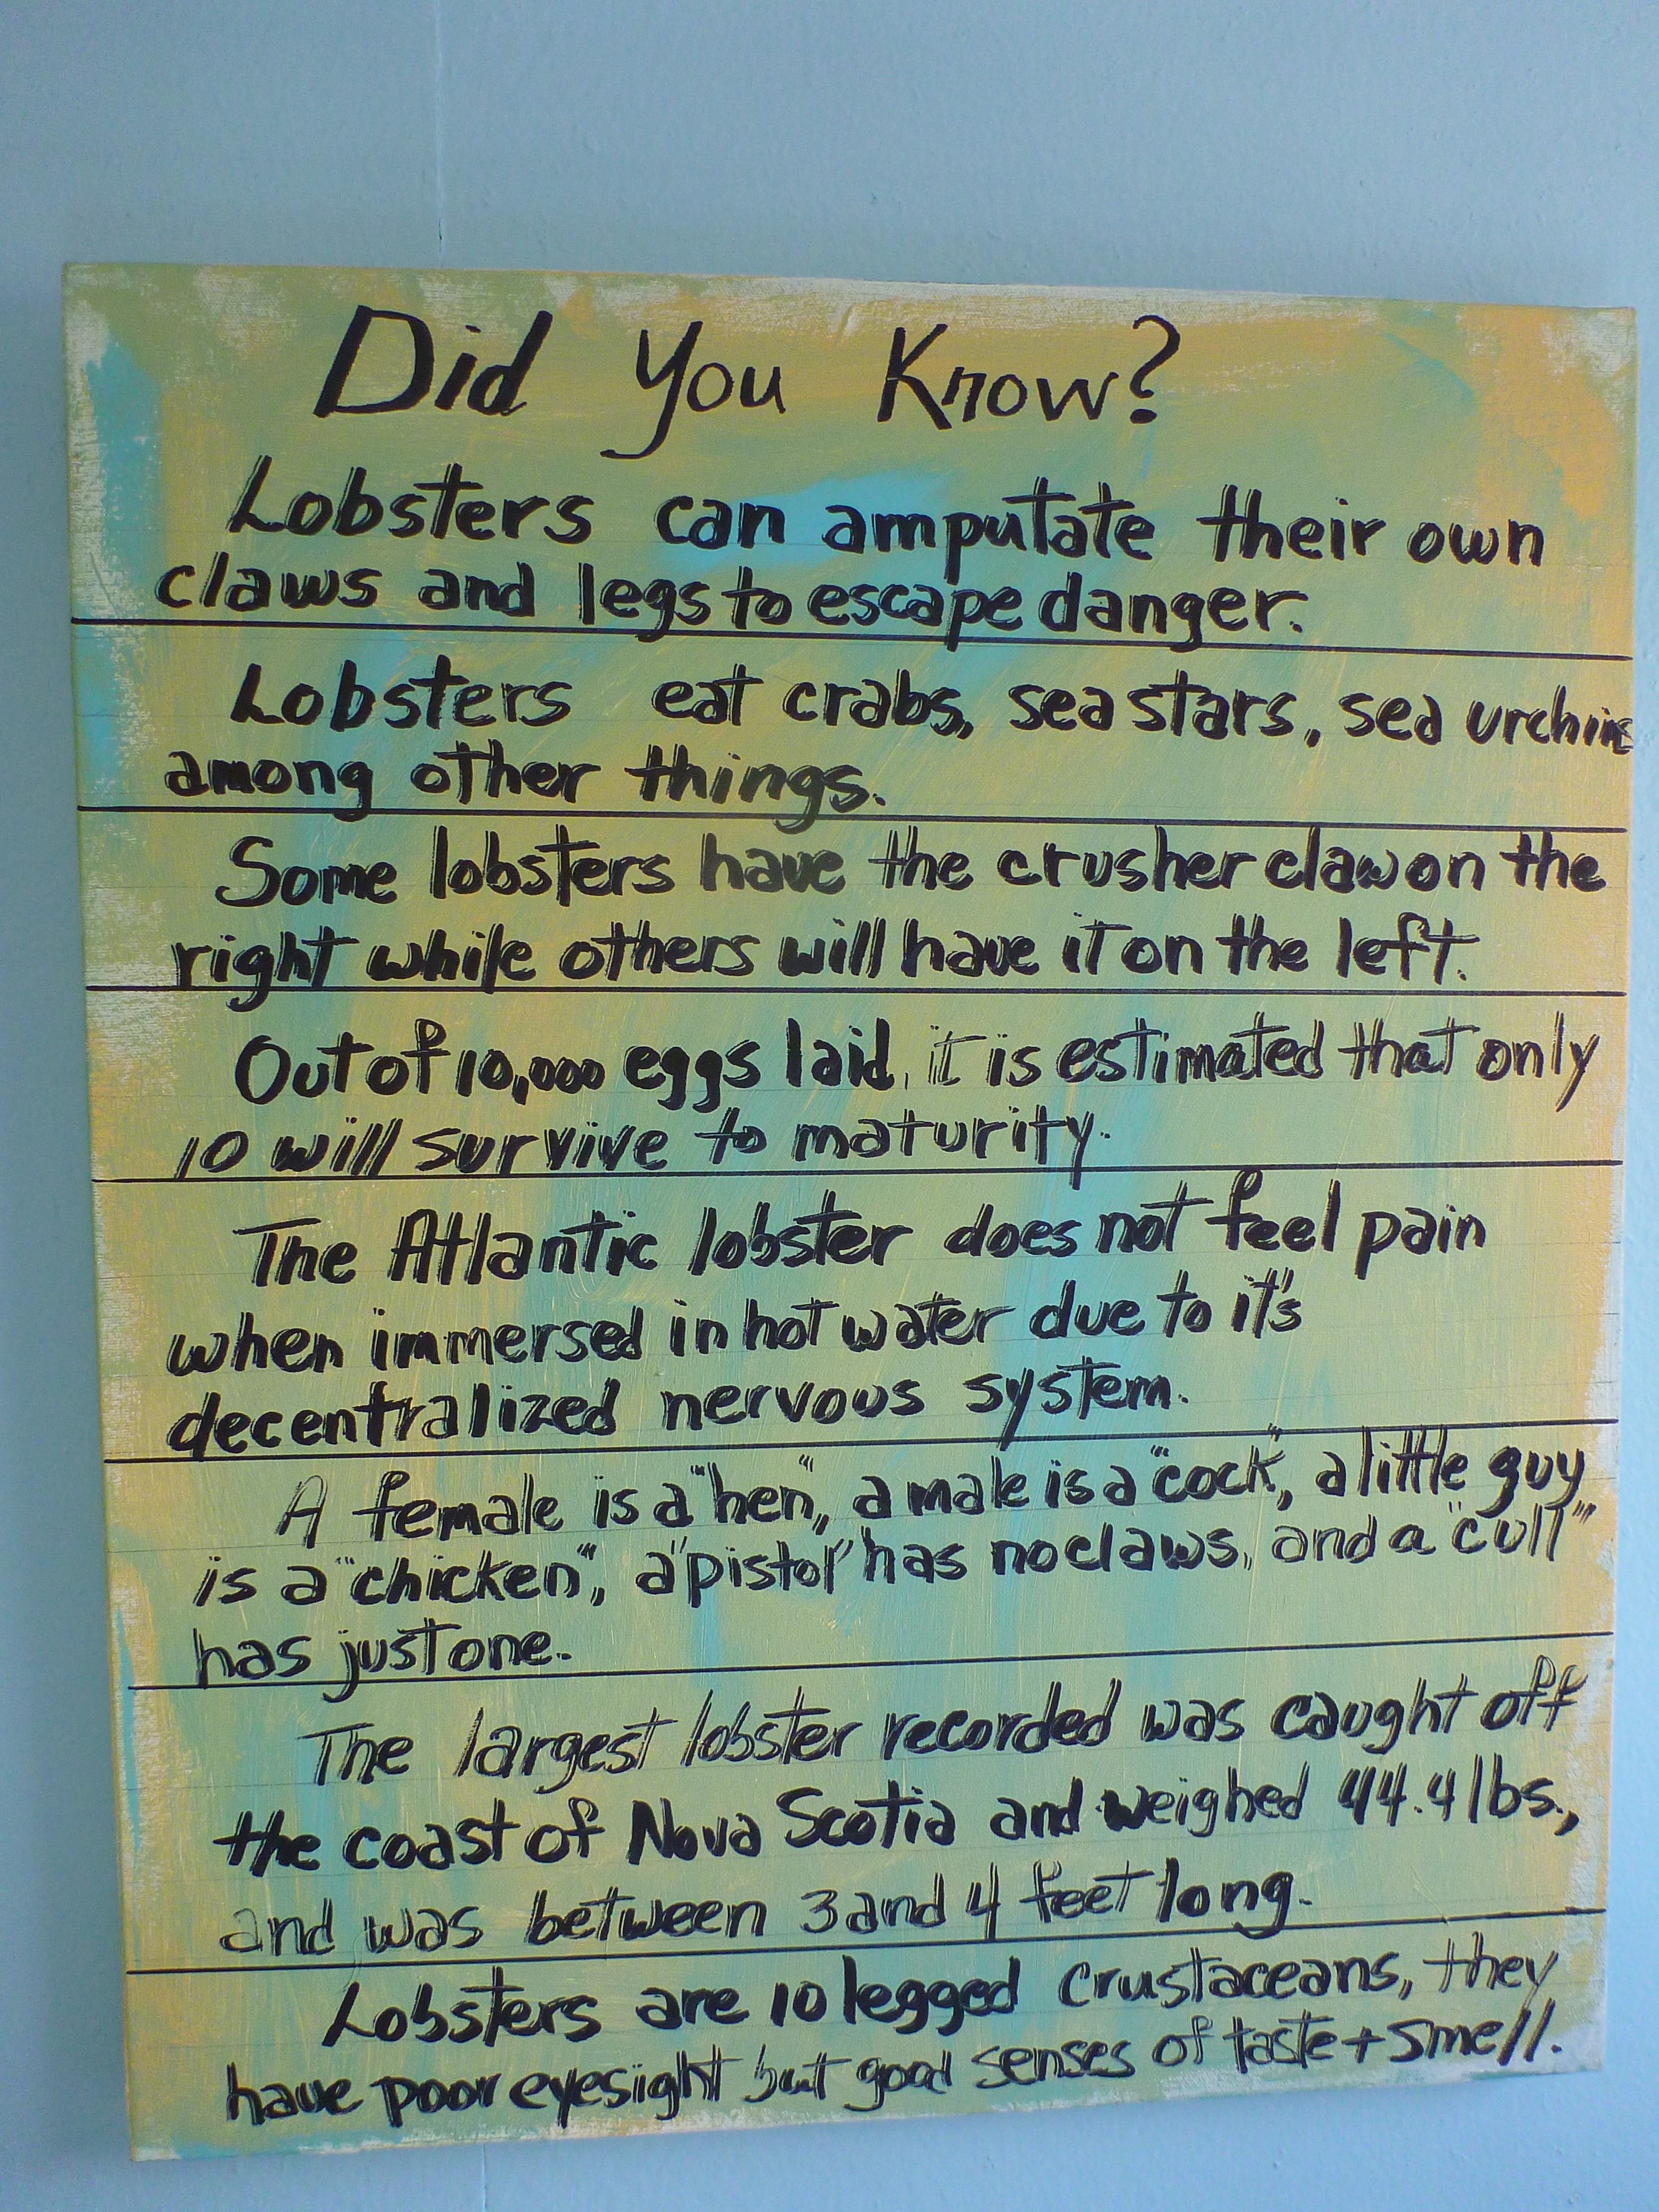 Did You Know?
Lobsters can amputate their own
claws and legs to escape danger.
Lobsters eat crabs, sea stars, sea urchins
among other things.
Some lobsters have the crusher claw on the
right while others will have it on the left.
Out of 10,000 eggs laid, it is estimated that only
10 will survive to maturity.
The Atlantic lobster does not feel pain
when immersed in hot water due to it's
decentralized nervous system.
A female is a "hen", a male is a "cock", a little guy
is a "chicken", a "pistol" has no claws, and a "cull"
has just one.
The largest lobster recorded was caught off
the coast of Nova Scotia and weighed 44.4 lbs.,
and was between 3 and 4 feet long.
Lobsters are 10 legged crustaceans, they
have poor eyesight but good senses of taste + smell.